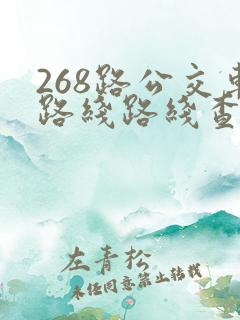 268路公交车
路线路线查
左青松
未经同意禁止转载